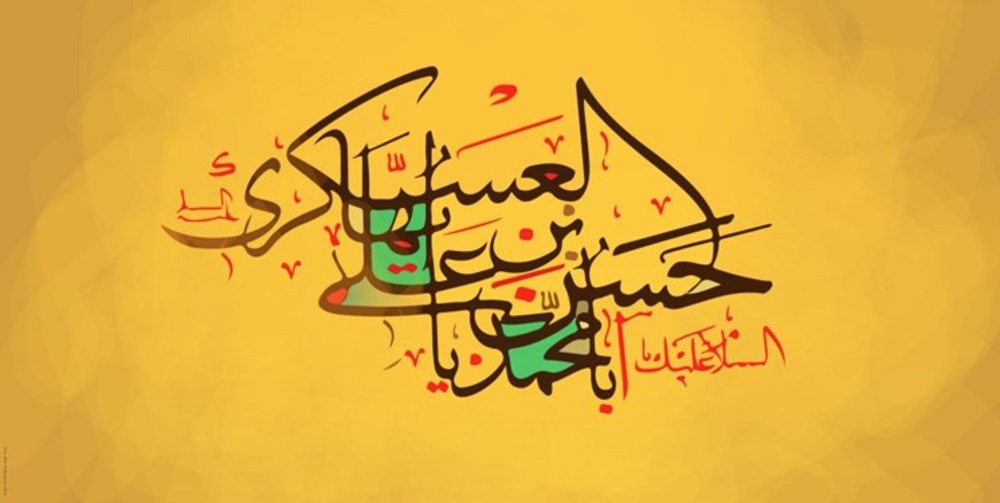 السلام علیک یا
أبا محمد یا
حسن بن علی
أیها العسکری